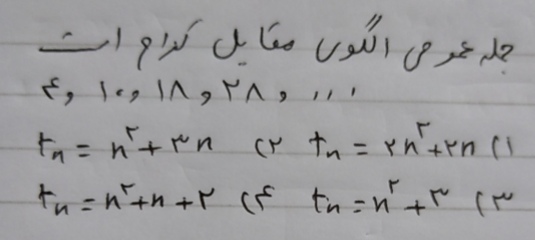 جمله عمومی الگوی مقابل کدام است
۴ و ۱۰ و ۱۸ و ۲۸ و ...
۱) tn = ۲n^۲ + ۲n ۲) tn = n^۲ + ۳n
۳) tn = n^۲ + ۳ ۴) tn = n^۲ + n + ۲